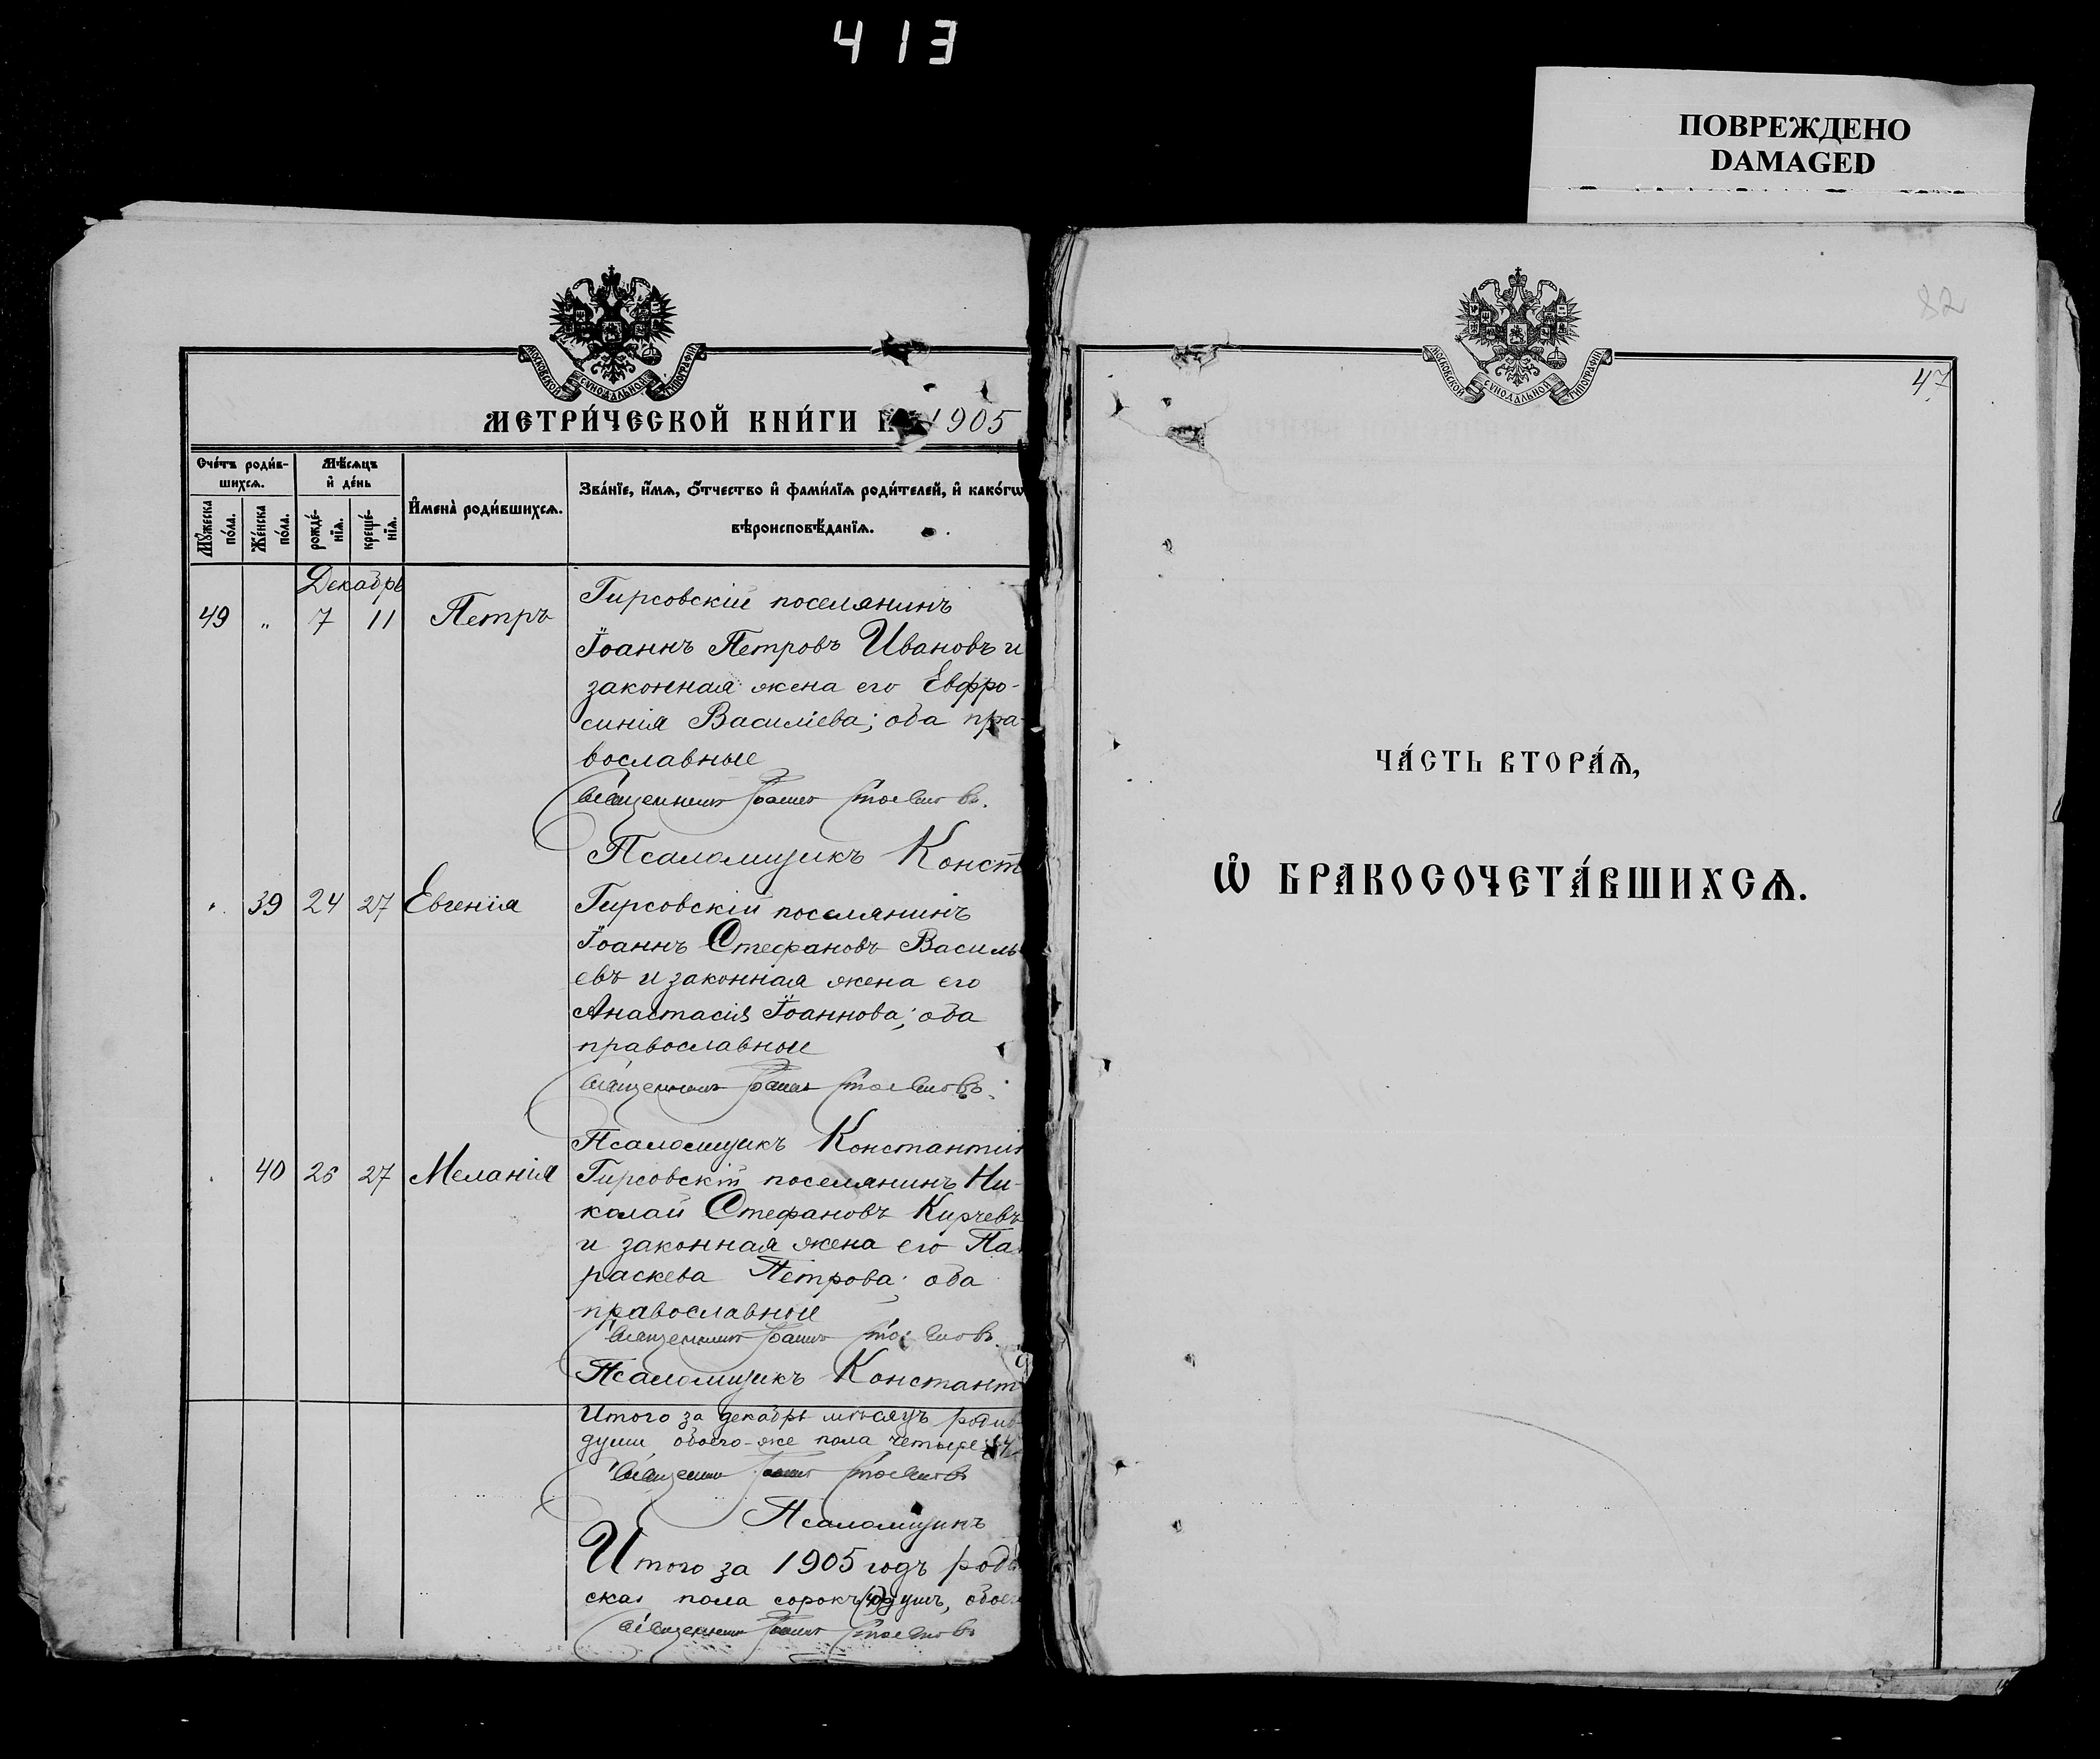 413
ПОВРЕЖДЕНО
DAMAGED
МОСКОВСКОЙ СѴНОДАЛЬНОЙ ТИПОГРАФІИ
МЕТРИ́ЧЕСКОЙ КНИ́ГИ 1905
Сче́тъ роди́в-
шихсѧ.
Мꙋ́жеска
по́ла.
Же́нска
по́ла.
Мѣ́сѧцъ
и҆ де́нь
рожде́-
нїѧ.
креще́-
нїѧ.
И҆мена̀ роди́вшихсѧ.
Зва́нїе, и҆́мѧ, ѻ҆́тчество и҆ фами́лїѧ роди́телей, и҆ како́гѡ
вѣроисповѣ́данїѧ.
Декабрь
49 " 7 11 Петръ
Гирсовскій поселянинъ
Іоаннъ Петровъ Ивановъ и
законная жена его Евфро-
синія Василіева; оба пра-
вославные
Священникъ Іоаннъ
Псаломщикъ Конст
" 39 24 27 Евгенія
Гирсовскій поселянинъ
Іоаннъ Стефановъ Василь
евъ и законная жена его
Анастасія Іоаннова; оба
православные
Священникъ Іоаннъ
Псаломщикъ Константин
40 26 27 Меланія
Гирсовскій поселянинъ Ни-
колай Стефановъ Кирчевъ
и законная жена его Па
раскева Петрова; оба
православные
Священникъ Іоаннъ
Псаломщикъ Констант
Итого за декабрь мѣсяцъ родив
души, обоего-же пола четыре
Священникъ Іоаннъ
Псаломщикъ
Итого за 1905 годъ роди
скаго пола сорокъ (40) душъ, обоего
Священникъ Іоаннъ
82
МОСКОВСКОЙ СѴНОДАЛЬНОЙ ТИПОГРАФІИ
47
ЧА́СТЬ ВТОРА́Ѧ,
Ѽ БРАКОСОЧЕТА́ВШИХСѦ.